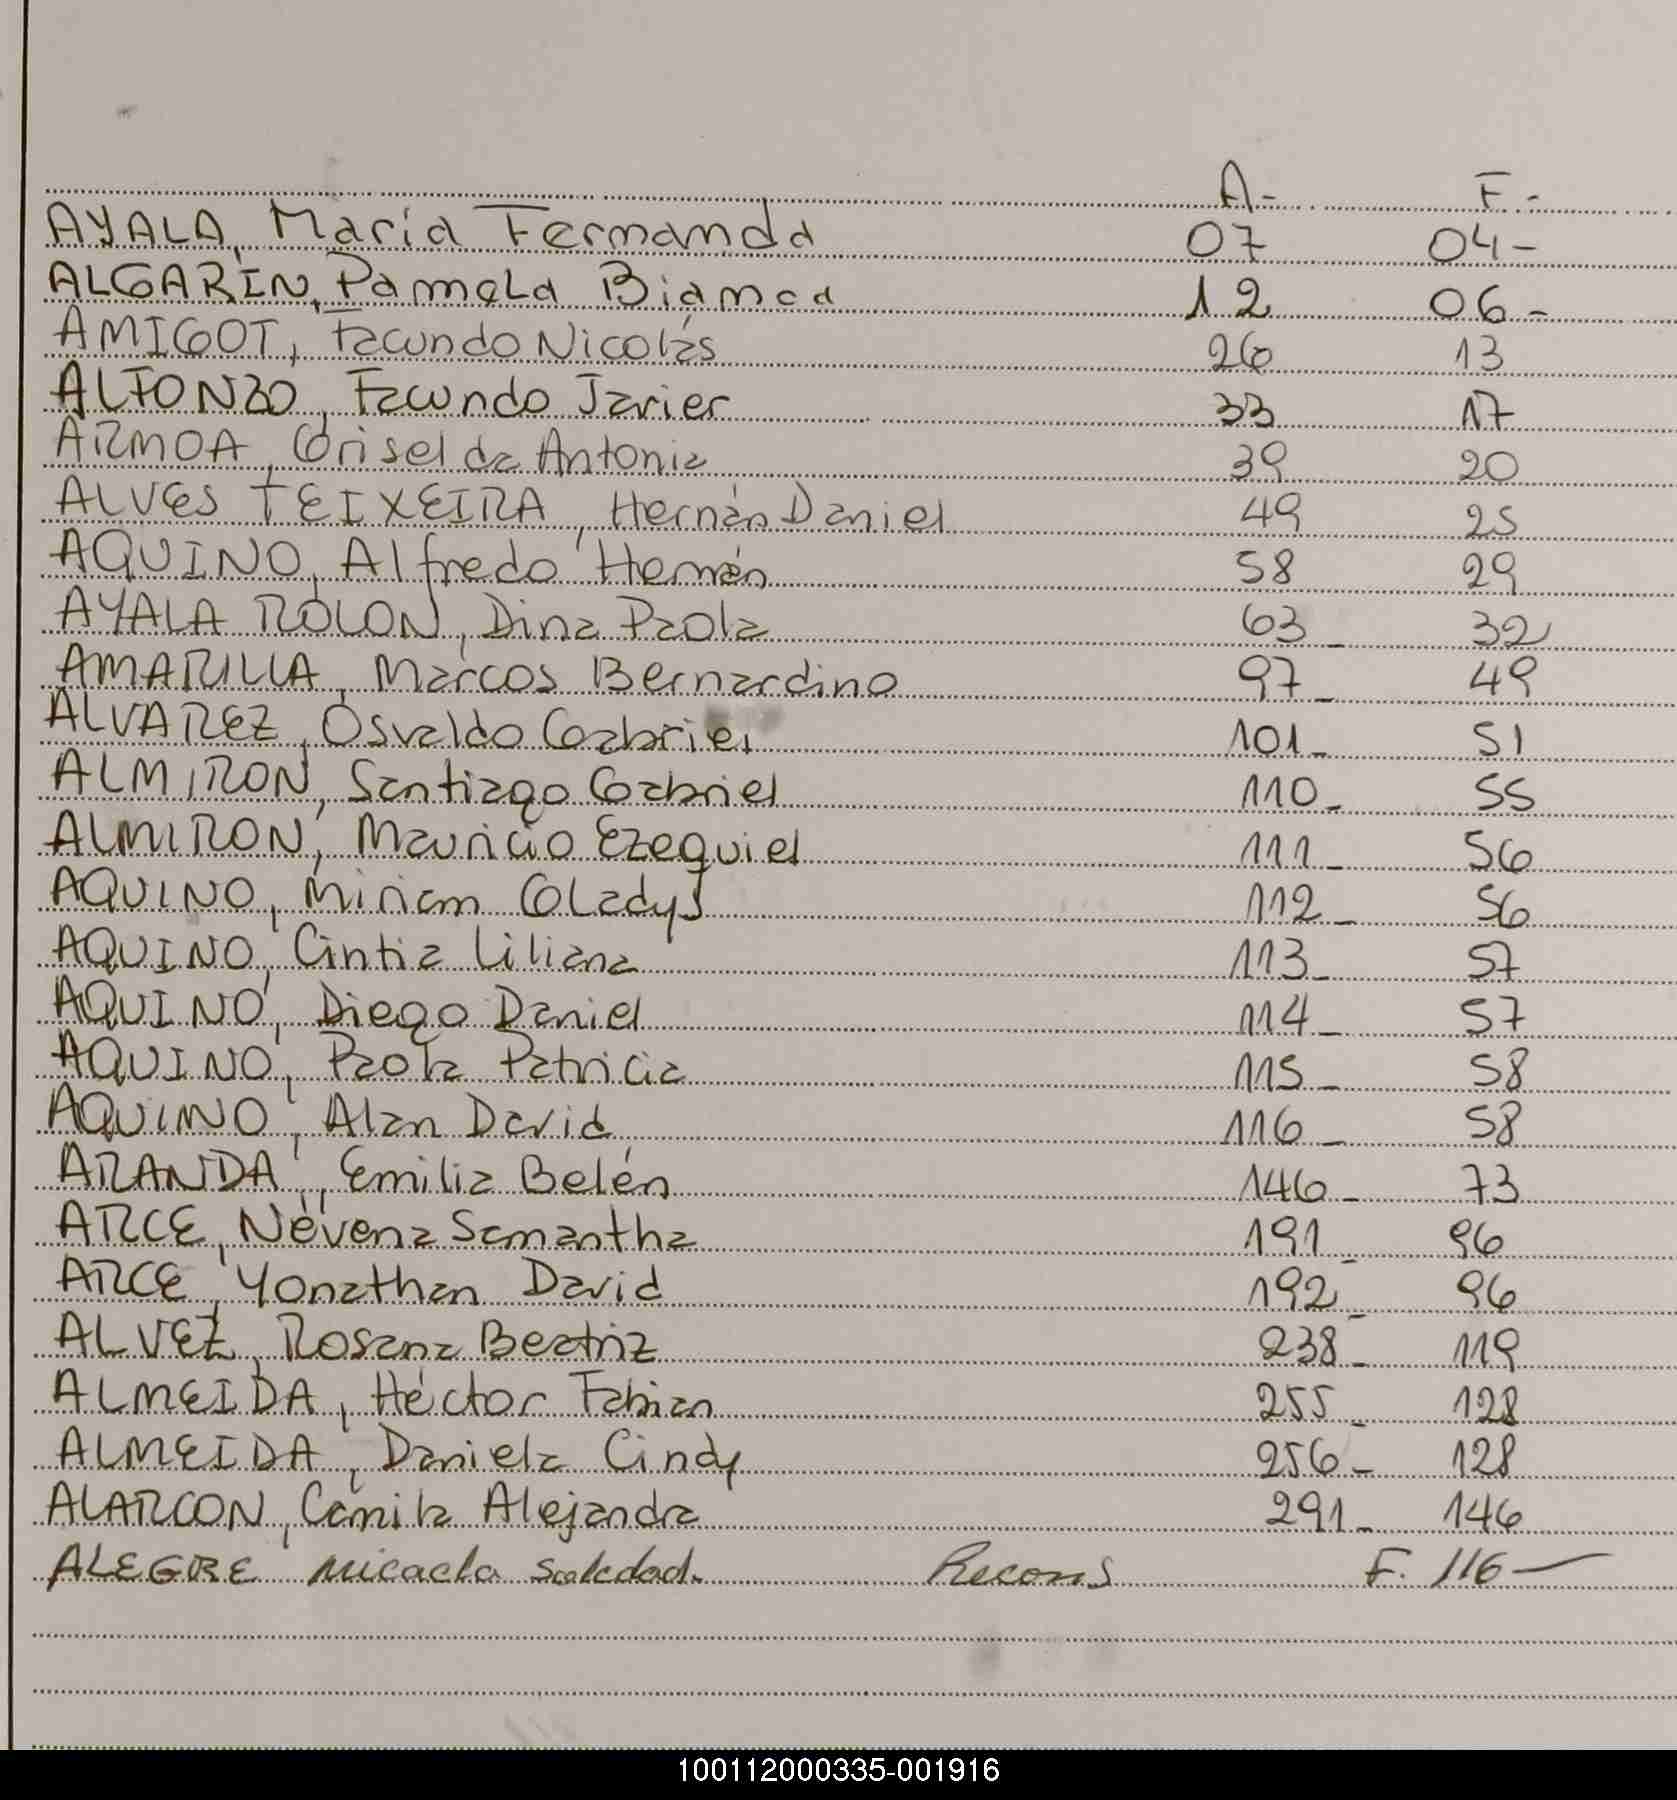 A- F.-
AYALA, María Fernanda 07 04-
ALGARÍN, Pamela Bianca 12 06-
AMIGOT, Facundo Nicolás 26 13
ALFONZO, Facundo Javier 33 17
ARMOA, Griselda Antonia 39 20
ALVES TEIXEIRA, Hernán Daniel 49 25
AQUINO, Alfredo Hernán 58 29
AYALA ROLON, Dina Paola 63- 32
AMARILLA, Marcos Bernardino 97- 49
ALVAREZ, Osvaldo Gabriel 101- 51
ALMIRON, Santiago Gabriel 110- 55
ALMIRON, Mauricio Ezequiel 111- 56
AQUINO, Miriam Gladys 112- 56
AQUINO, Cintia Liliana 113- 57
AQUINO, Diego Daniel 114- 57
AQUINO, Paola Patricia 115- 58
AQUINO, Alan David 116- 58
ARANDA, Emilia Belén 146- 73
ARCE, Nevena Samantha 191- 96
ARCE, Yonathan David 192- 96
ALVEZ, Rosana Beatriz 238- 119
ALMEIDA, Héctor Fabian 255- 128
ALMEIDA, Daniela Cindy 256- 128
ALARCON, Camila Alejandra 291- 146
ALEGRE Micaela Soledad. Recons F. 116-
100112000335-001916